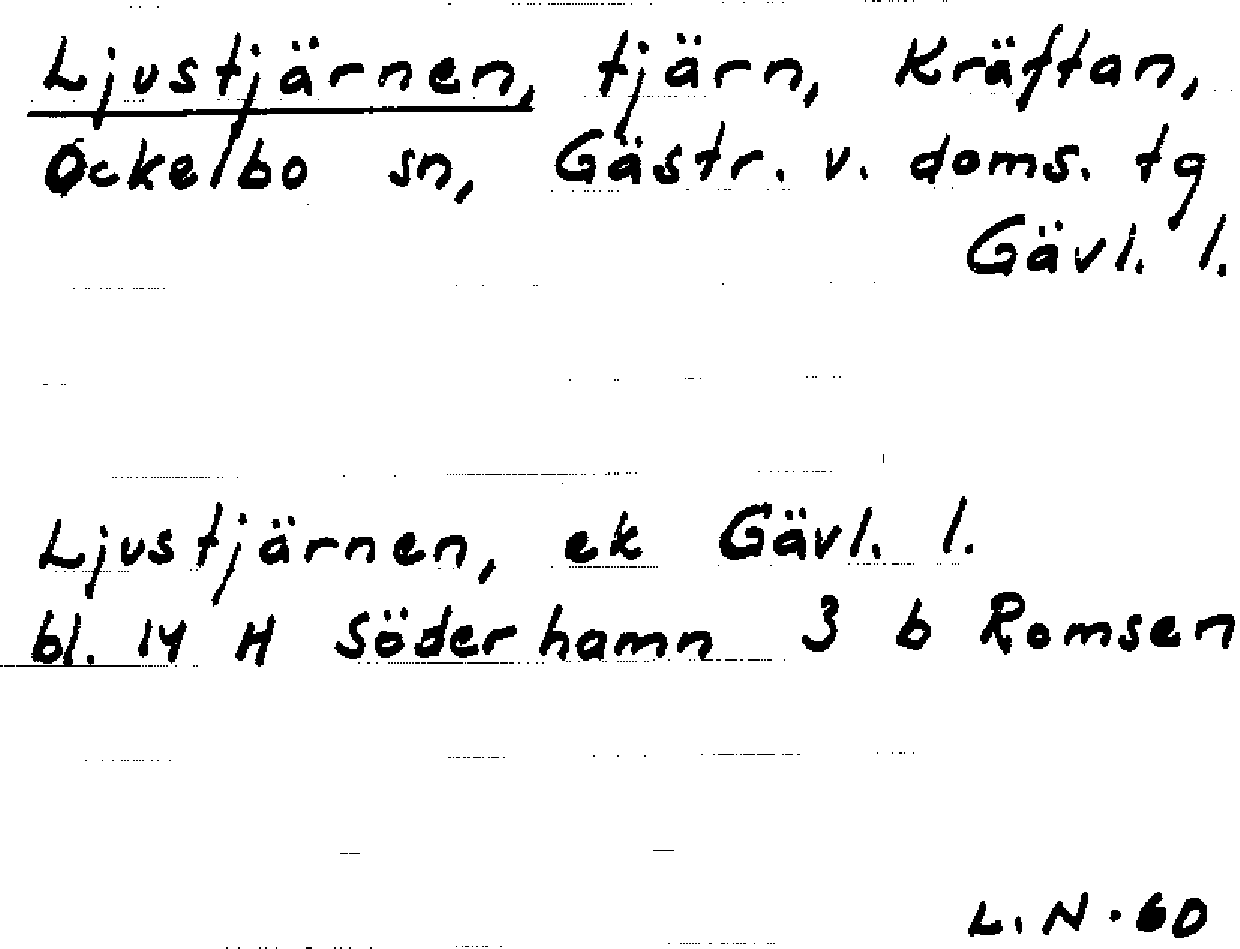 Ljustjärnen, tjärn, Kräftan,
Ockelbo sn, Gästr. v. doms. tg
Gävl. l.
Ljustjärnen, ek Gävl. l.
bl. 14 H Söderhamn 3 b Romsen
L. N. 60